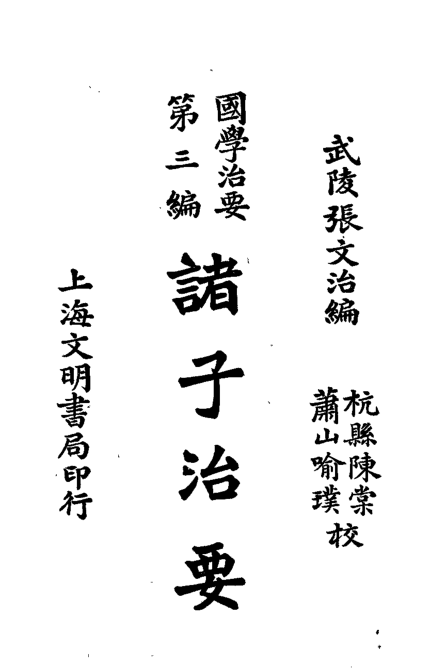 武陵張文治編
杭縣陳棠
蕭山喻璞校
國學治要
第三編
諸子治要
上海文明書局印行